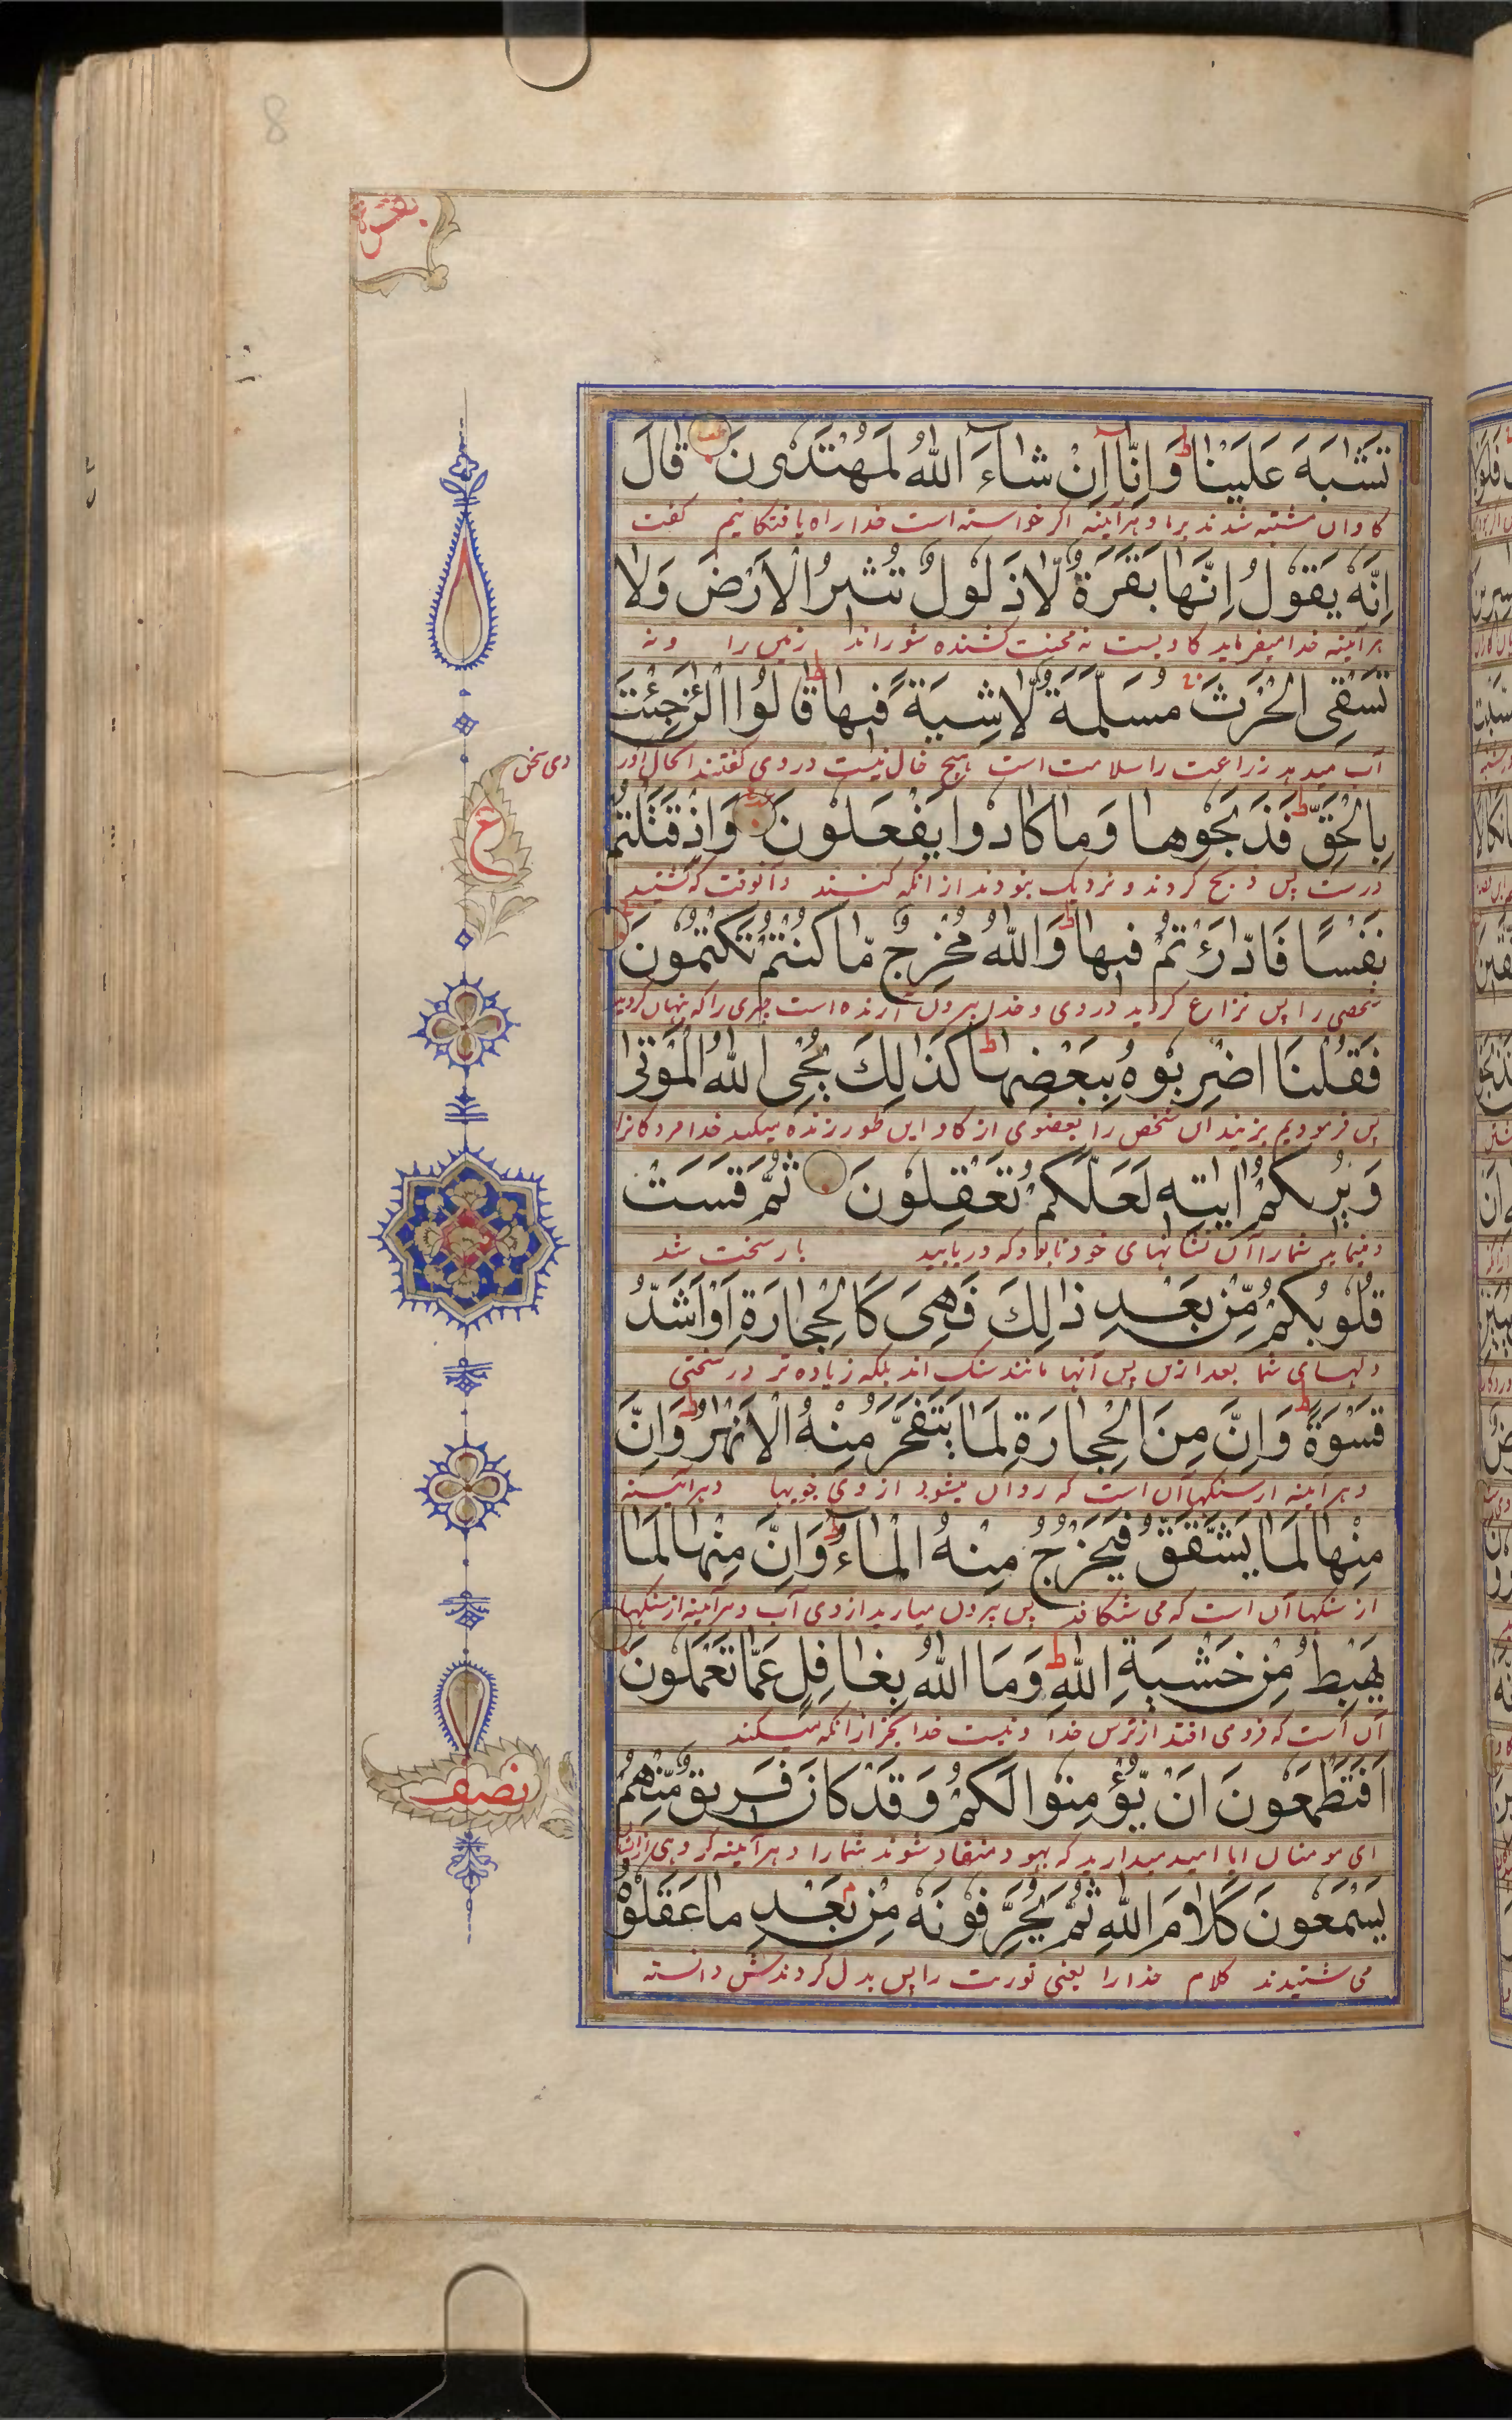 8
بقرة
تَشٰبَهَ عَلَيْنَا ط وَاِنَّآ اِنْ شَآءَ اللّٰهُ لَمُهْتَدُوْنَ قَالَ
کاوان مشتبه شدند برما و هرآینه اکر خواسته است خدا راه یافتکانیم کفت
اِنَّهٗ يَقُوْلُ اِنَّهَا بَقَرَةٌ لَّا ذَلُوْلٌ تُثِيْرُ الْاَرْضَ وَلَا
هرآینه خدا میفرماید کاویست نه محنت کشنده شوراند زمین را و نه
تَسْقِى الْحَرْثَ مُسَلَّمَةٌ لَّا شِيَةَ فِيْهَا ط قَالُوا الْـٰٔنَ جِئْتَ
آب میدهد زراعت را سلامت است هیچ خال نیست در وی کفتند اکحال آور
بِالْحَقِّ ط فَذَبَحُوْهَا وَمَا كَادُوْا يَفْعَلُوْنَ وَاِذْ قَتَلْتُمْ
درست پس ذبح کردند و نزدیک نبودند از انکه کنند و آنوقت که کشتید
ع
نَفْسًا فَادّٰرَءْتُمْ فِيْهَا ط وَاللّٰهُ مُخْرِجٌ مَّا كُنْتُمْ تَكْتُمُوْنَ
شخصی را پس نزارع کردید در وی و خدا بیرون آرنده است چیزی را که پنهان کردید
فَقُلْنَا اضْرِبُوْهُ بِبَعْضِهَا ط كَذٰلِكَ يُحْىِ اللّٰهُ الْمَوْتٰى
پس فرمودیم بزنید آن شخص را بعضوی از کاو این طور زنده میکند خدا مردکانرا
وَيُرِيْكُمْ اٰيٰتِهٖ لَعَلَّكُمْ تَعْقِلُوْنَ ثُمَّ قَسَتْ
و مینماید شما را آن نشانهای خود تا بود که دریابید باز سخت شد
قُلُوْبُكُمْ مِّنْ بَعْدِ ذٰلِكَ فَهِىَ كَالْحِجَارَةِ اَوْ اَشَدُّ
دلهای شما بعد ازین پس آنها مانند سنک اند بلکه زیاده تر در سختی
قَسْوَةً ط وَاِنَّ مِنَ الْحِجَارَةِ لَمَا يَتَفَجَّرُ مِنْهُ الْاَنْهٰرُ ط وَاِنَّ
و هرآینه از سنکها آن است که روان میشود از وی جویها و هرآینه
مِنْهَا لَمَا يَشَّقَّقُ فَيَخْرُجُ مِنْهُ الْمَآءُ ط وَاِنَّ مِنْهَا لَمَا
از سنکها آن است که می شکافد پس بیرون میاید از وی آب و هرآینه از سنکها
يَهْبِطُ مِنْ خَشْيَةِ اللّٰهِ ط وَمَا اللّٰهُ بِغَافِلٍ عَمَّا تَعْمَلُوْنَ
آن است که فرو می افتد از ترس خدا و نیست خدا بیخبر از انکه میکنند
نصف
اَفَتَطْمَعُوْنَ اَنْ يُّؤْمِنُوْا لَكُمْ وَقَدْ كَانَ فَرِيْقٌ مِّنْهُمْ
ای مومنان ایا امید میدارید که یهود منقاد شوند شما را و هرآینه کروهی از ایشان
يَسْمَعُوْنَ كَلَامَ اللّٰهِ ثُمَّ يُحَرِّفُوْنَهٗ مِنْ بَعْدِ مَا عَقَلُوْهُ
می شنیدند کلام خدا را یعنی توریت را پس بدل کردندش دانسته